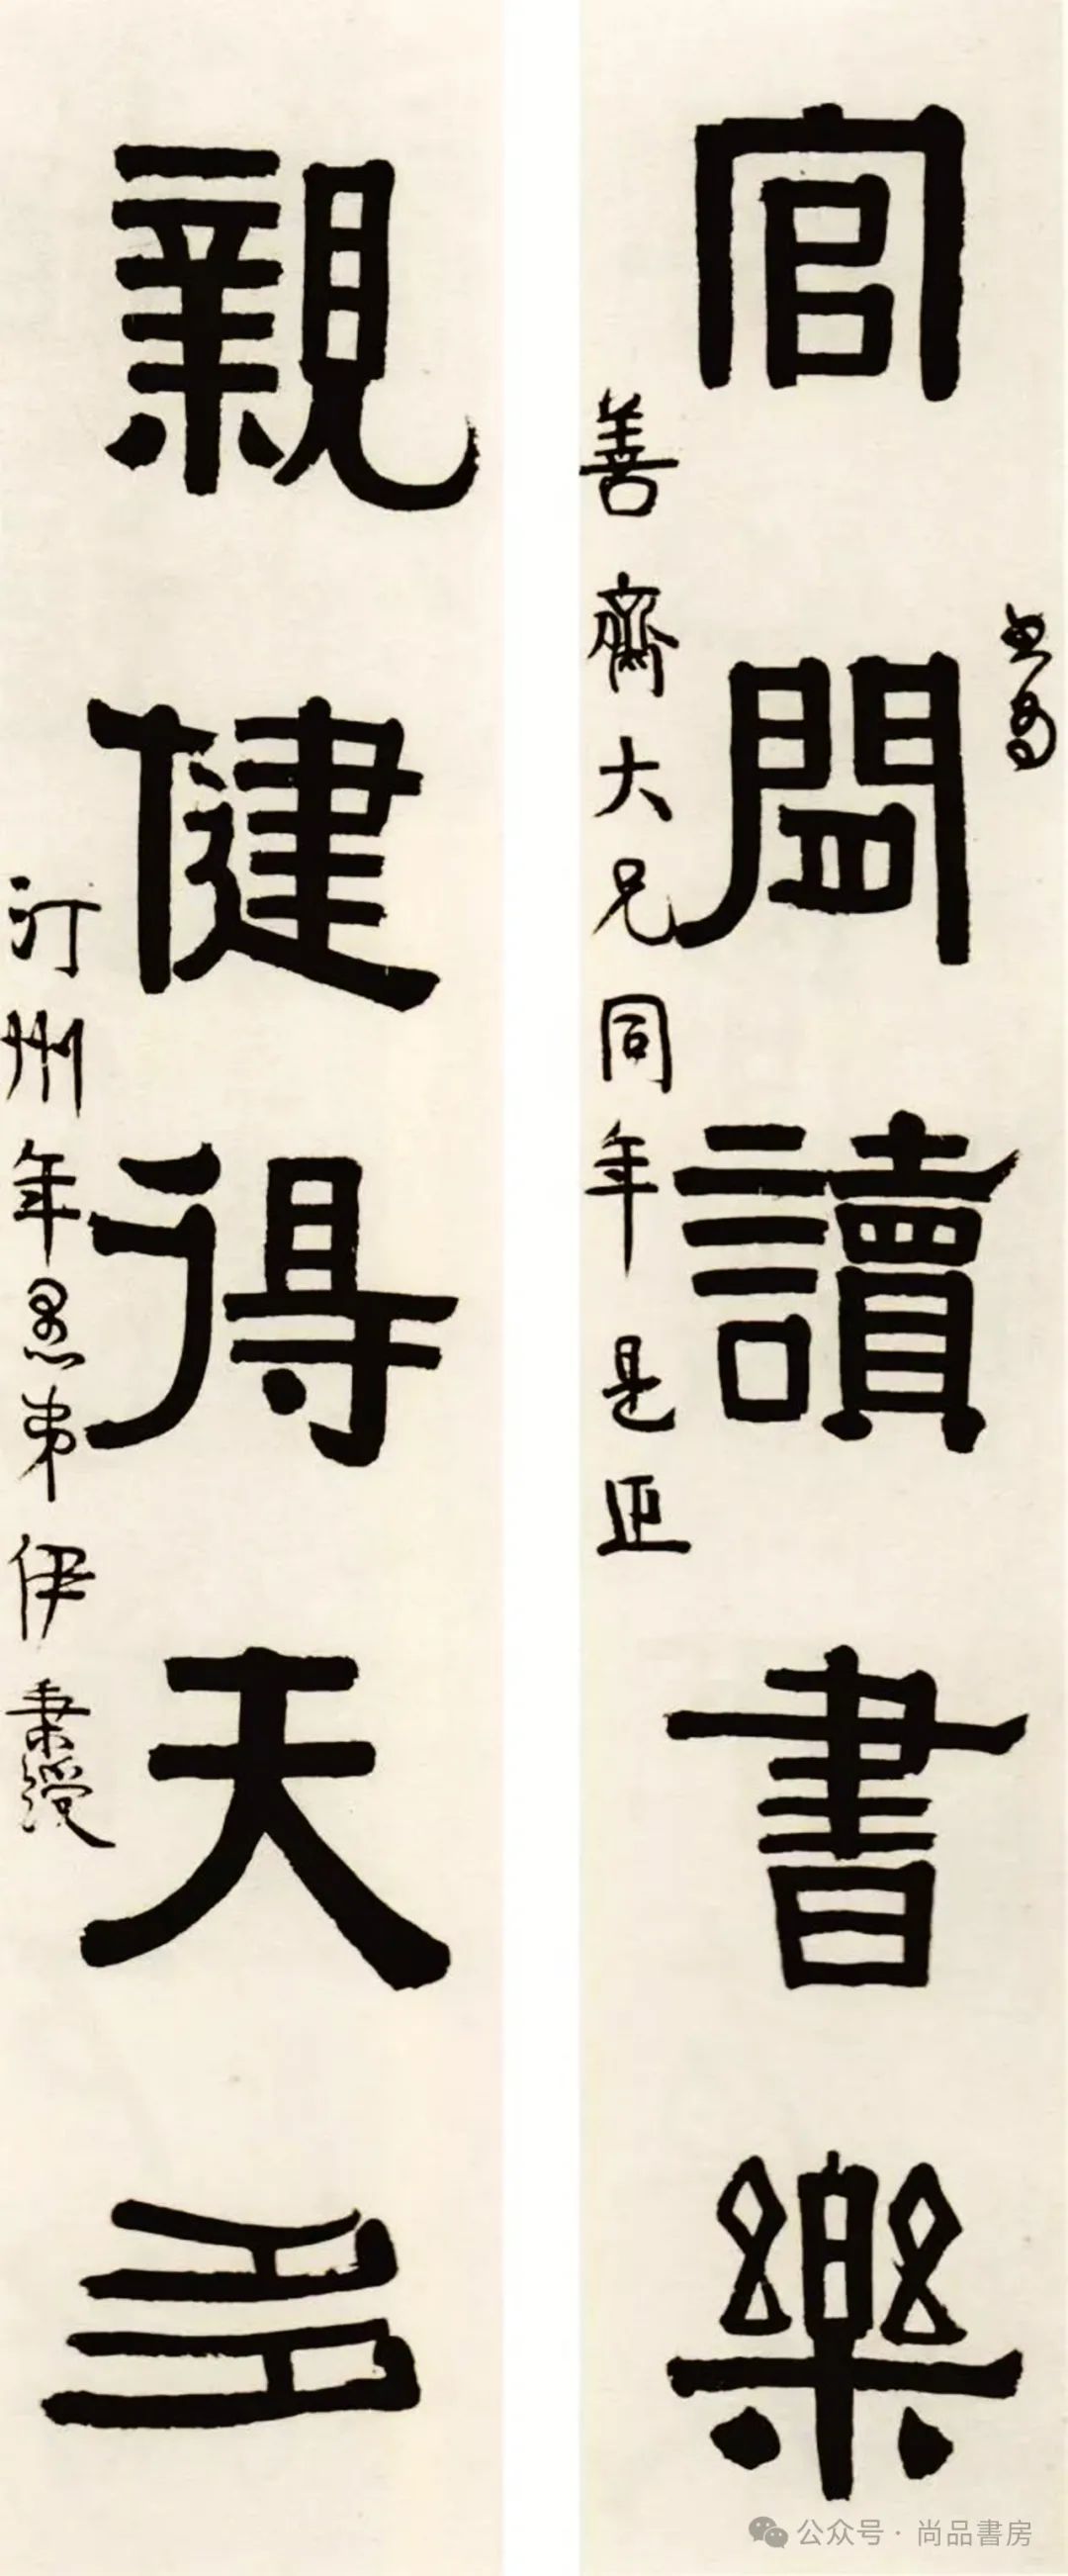 官閒讀書樂
書為
善齋大兄同年是正
親健得天多
汀州年愚弟伊秉綬
公众号 · 尚品書房